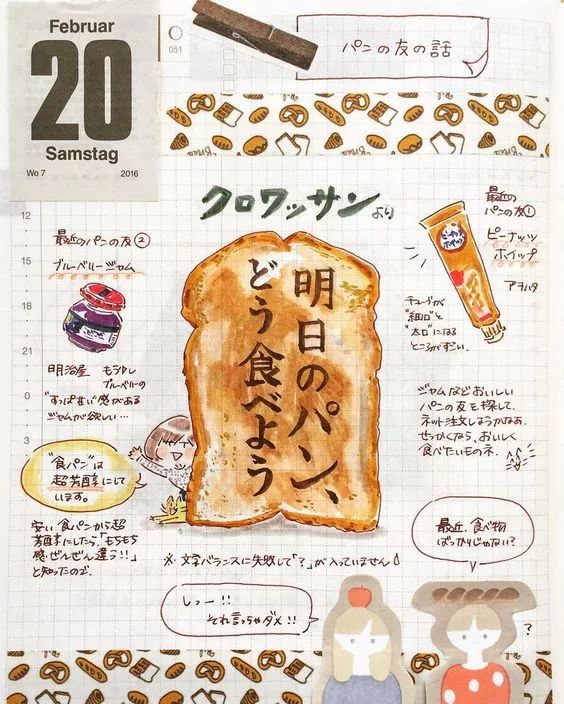 Februar
20
Samstag
Wo 7
2016
051
パンの友の話
クロワッサンより
明日のパン、
どう食べよう
最近のパンの友②
ブルーベリージャム
明治屋 もう少し
ブルーベリーの
"すっぱせい感がある
ジャムが欲しい…
最近の
パンの友①
ピーナッツ
ホイップ
アヲハタ
チューブが
"細口"と
"太口"になる
ところがすごい.
ジャムなどおいしい
パンの友を探して、
ネット注文しようかなぁ.
せっかくなら、おいしく
食べたいものネ.
12
15
18
21
0
3
"食パン"は
超芳醇にして
います。
安い食パンから超
芳醇にしたら、「もちもち
感・ぜんぜん違う!!」
と知ったので.
※文字バランスに失敗して「?」が入っていません
最近、食べ物
ばっかりじゃない?
しっー!!
それ言っちゃダメ!!
?